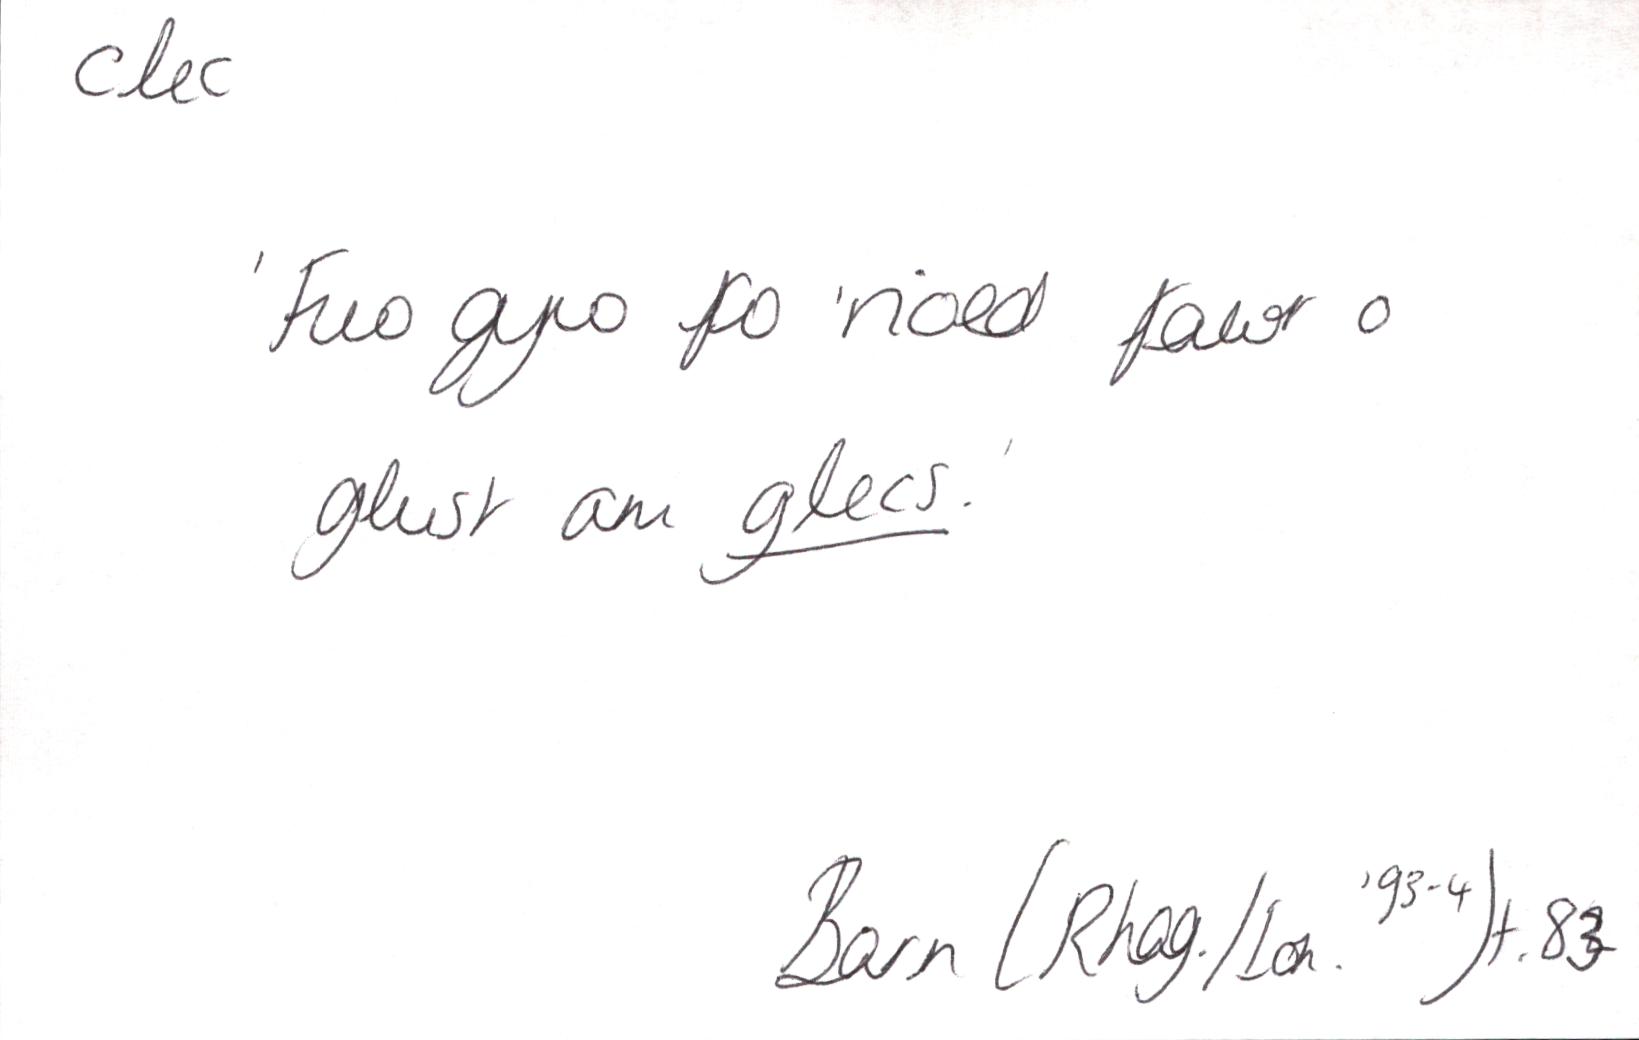 clec
'Fuo gyno fo 'rioed fawr o
glust am glecs.'
Barn (Rhag./Ion. '93-4) t. 83